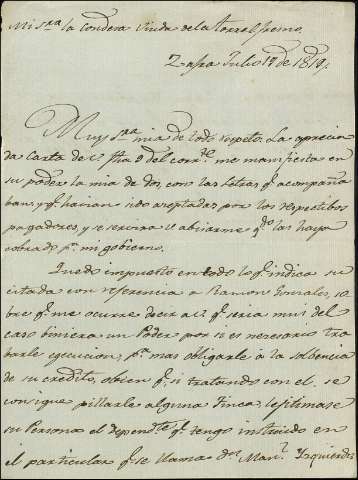 Mi Sra. la Condesa Viuda de la Torre
Zafra Julio 12 de 1819.
Muy Sra. mia de todo respeto. La aprecia
da carta de V. fha 9 del corrte. me manifiesta en
su poder la mia de dos, con las letras q. acompaña
ban, y q. hacian sido aceptadas por los respectibos
pagadores, y se servira V. abisarme qdo. las haya
cobrado pa. mi gobierno.
Quedo impuesto en todo lo q. indica su
citada con referencia a Ramon Gonzales, so
bre q. me ocurre decir a V. q. seria mui del
caso biniera un Poder por si es necesario tra
barle ejecucion, pa. mas obligarle à la solbencia
de su credito, obien q. si tratando con el, se
consique pillarle alguna Finca, lejitimase
su Persona el dependte. q. tengo instruido en
el particular q. se llama dn. Manl. Izquierdo